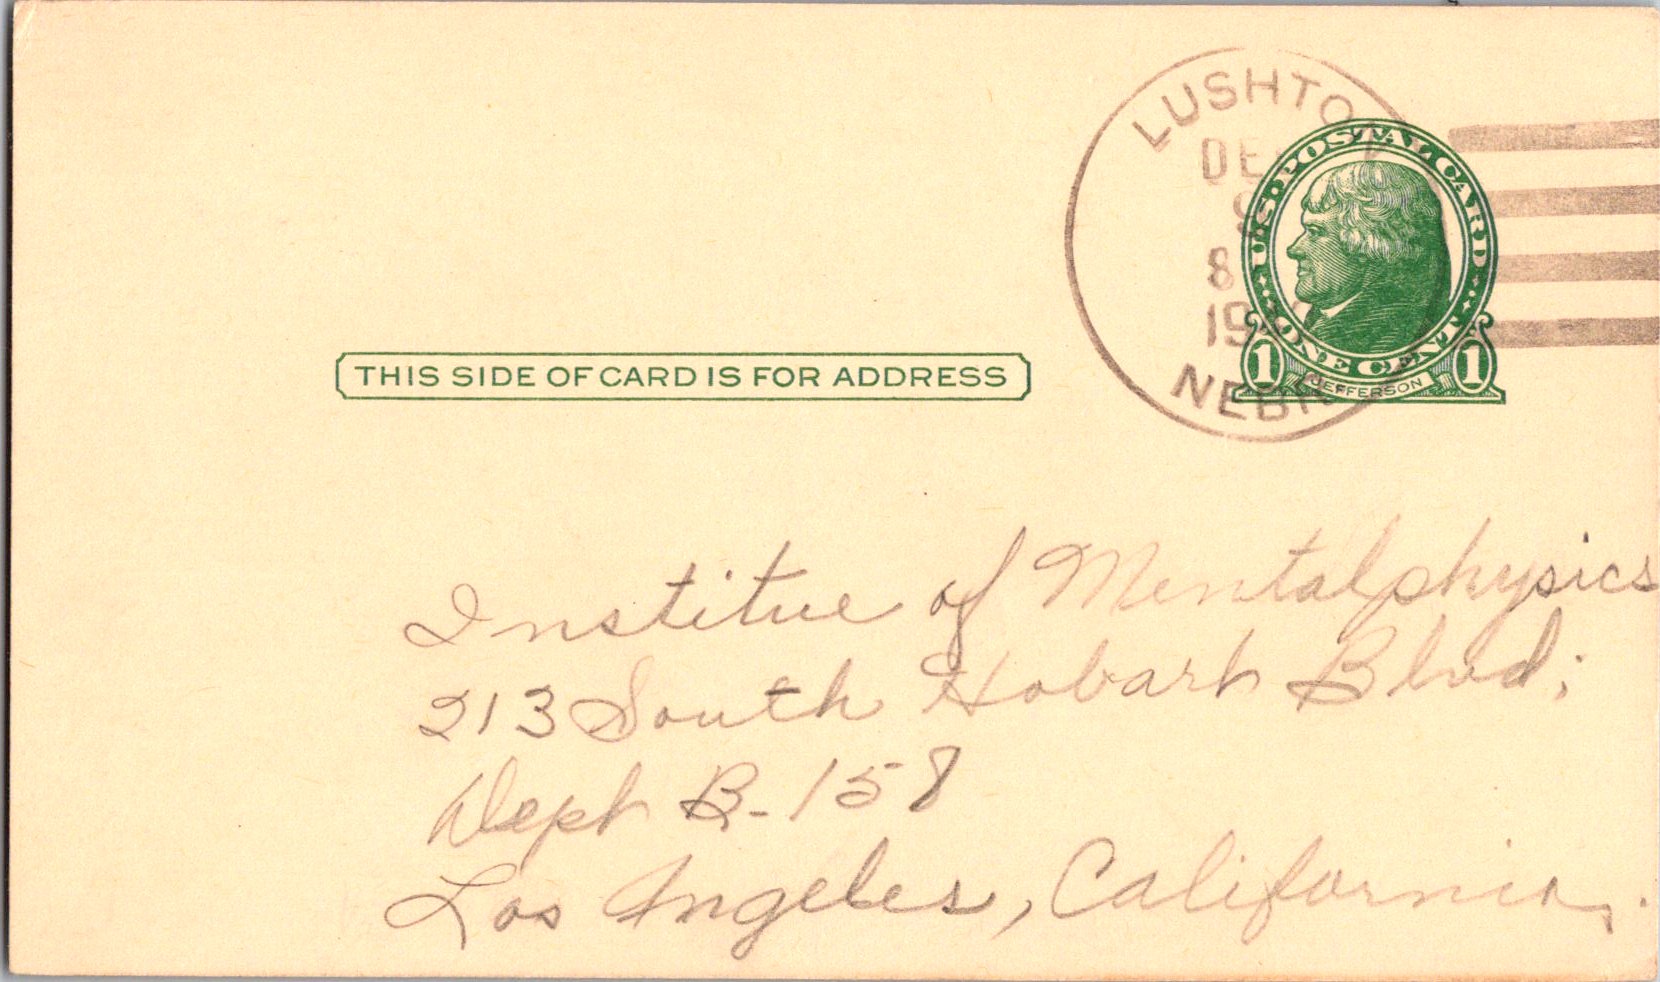 LUSHTON
DEC
9
8
19
NEBR
U.S. POSTAL CARD
ONE CENT
1 JEFFERSON 1
THIS SIDE OF CARD IS FOR ADDRESS
Institue of Mentalphysics
213 South Hobart Blvd;
Dept B-158
Los Angeles, California.